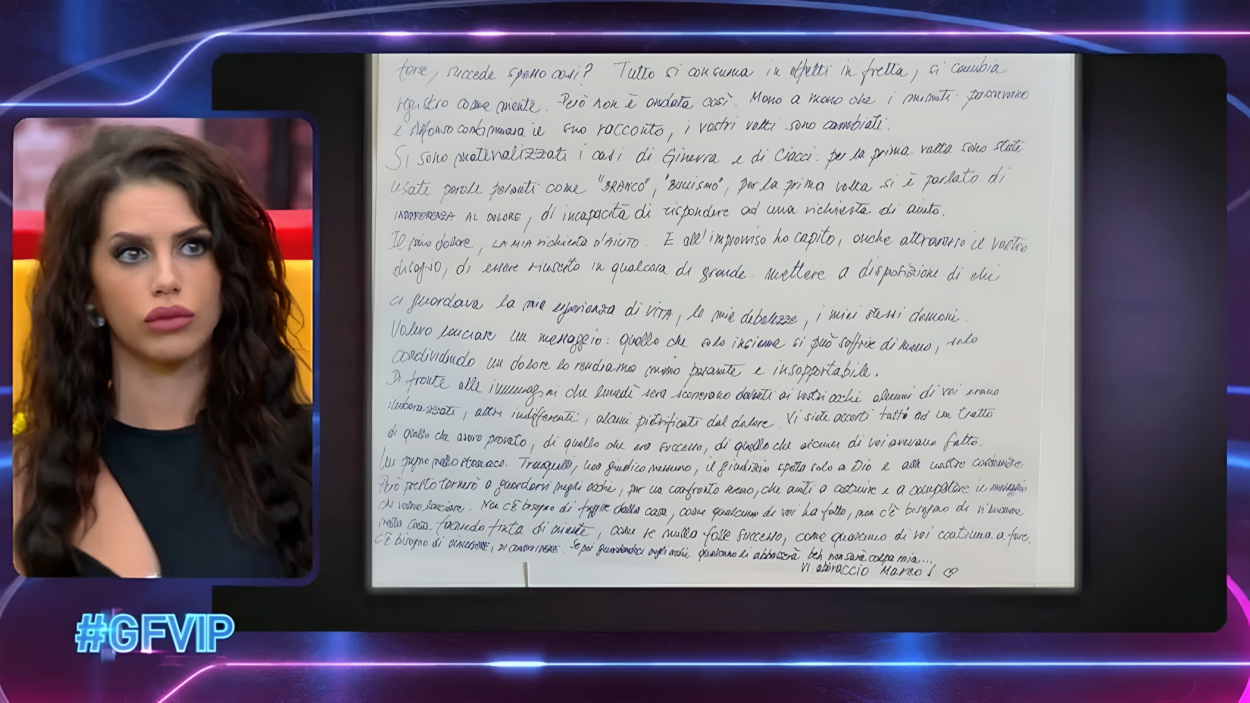 forse, succede spesso così? Tutto si consuma in effetti in fretta, si cambia
registro come niente. Però non è andata così. Mano a mano che i minuti passavano
e Alfonso continuava il suo racconto, i vostri volti sono cambiati.
Si sono materializzati i casi di Ginevra e di Ciacci: per la prima volta sono state
usate parole pesanti come "BRANCO", "BULLISMO", per la prima volta si è parlato di
INDIFFERENZA AL DOLORE, di incapacità di rispondere ad una richiesta di aiuto.
dolore, LA MIA richiesta D'AIUTO. E all'improvviso ho capito, anche attraverso il vostro
disagio, di essere riuscito in qualcosa di grande. mettere a disposizione di chi
ci guardava la mia esperienza di VITA, le mie debolezze, i miei stessi demoni.
Volevo lanciare un messaggio: quello che solo insieme si può soffrire di meno, solo
condividendo un dolore lo rendiamo meno pesante e insopportabile.
Di fronte alle immagini che lunedì sera scorrevano davanti ai vostri occhi alcuni di voi erano
imbarazzati, altri indifferenti, alcuni pietrificati dal dolore. Vi siete accorti tutto ad un tratto
di quello che avevo provato, di quello che era successo, di quello che alcuni di voi avevano fatto.
Un pugno nello stomaco. Tranquilli, non giudico nessuno, il giudizio spetta solo a Dio e alle nostre coscienze.
Però presto tornerò a guardarvi negli occhi, per un confronto sereno, che aiuti a costruire e a completare il messaggio
che volevo lanciare. Non c'è bisogno di fuggire dalla casa, come qualcuno di voi ha fatto, non c'è bisogno di rimanere
nella casa facendo finta di niente, come se nulla fosse successo, come qualcuno di voi continua a fare.
C'è bisogno di , DI CONDIVIDERE. Se poi guardandoci negli occhi qualcuno li abbasserà beh non sarà colpa mia...
Vi abbraccio Marco! ♡
#GFVIP